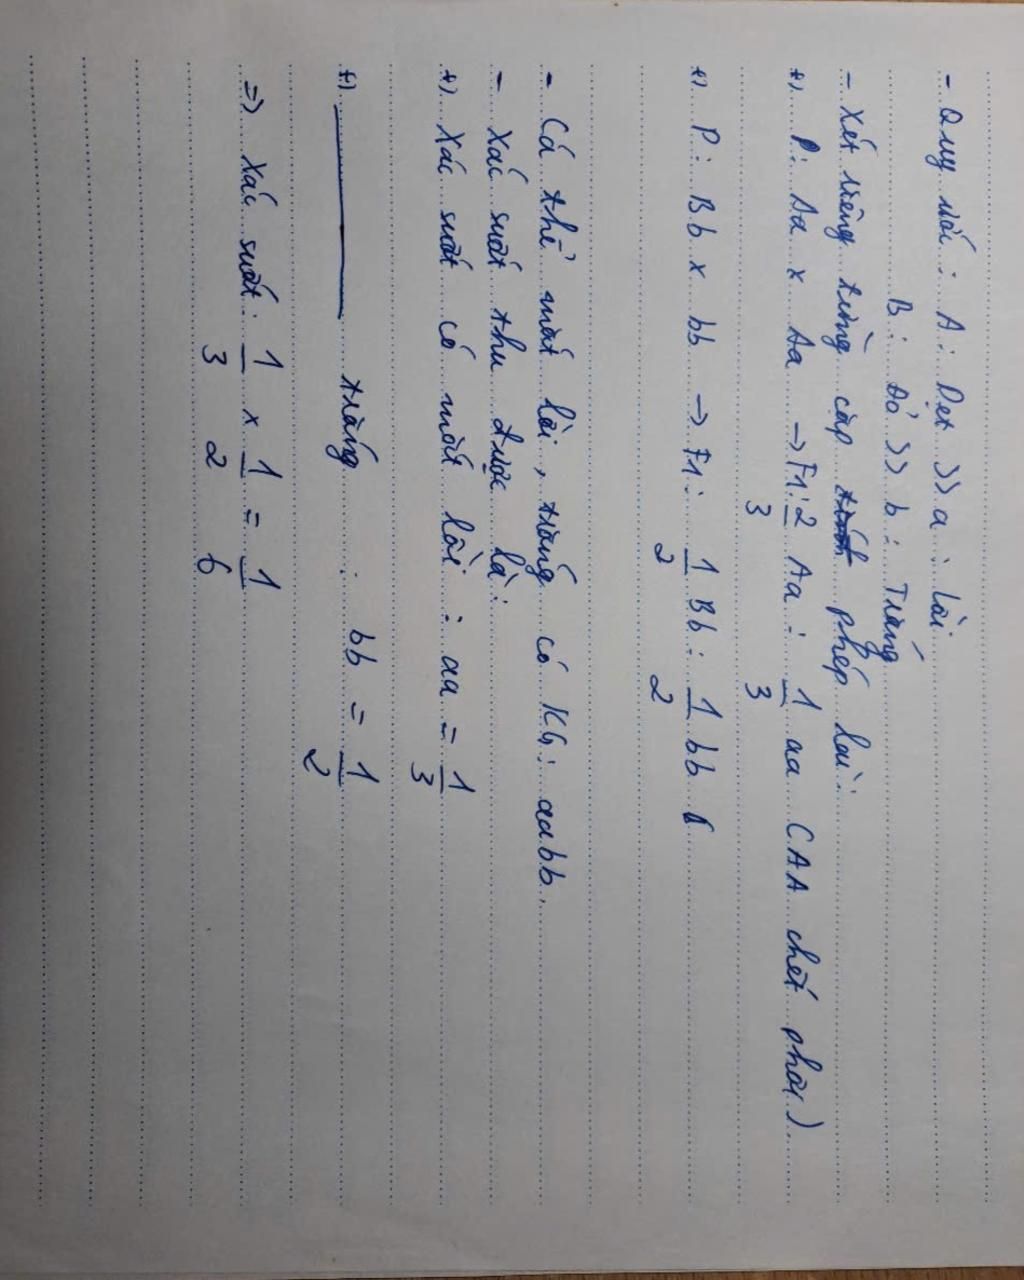 - Quy ước : A : Dẹt >> a : Lồi.
B : Đỏ >> b : Trắng
- Xét riêng từng cặp phép lai :
+) P : Aa x Aa → F1 : 2/3 Aa : 1/3 aa (AA chết phôi).
+) P : Bb x bb → F1 : 1/2 Bb : 1/2 bb
- Cá thể mắt lồi, trắng có KG : aabb.
- Xác suất thu được là :
+) Xác suất có mắt lồi : aa = 1/3
+) ——— trắng : bb = 1/2
=) Xác suất : 1/3 x 1/2 = 1/6